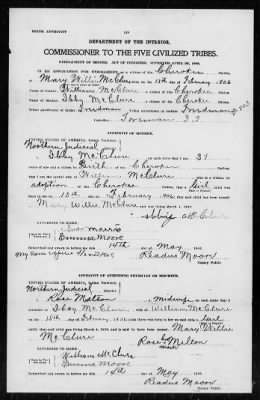 BIRTH AFFIDAVIT.
DEPARTMENT OF THE INTERIOR.
COMMISSIONER TO THE FIVE CIVILIZED TRIBES.
ENROLLMENT OF MINORS. ACT OF CONGRESS, APPROVED APRIL 26, 1906.
IN RE APPLICATION FOR ENROLLMENT, as a citizen of the Cherokee Nation,
of Mary Willie McClure, born on the 15th day of February, 1906
Name of Father: William McClure a citizen of the Cherokee Nation.
Name of Mother: Ibby McClure a citizen of the Cherokee Nation.
AFFIDAVIT OF MOTHER.
UNITED STATES OF AMERICA, Indian Territory,
Northern Judicial District.
I, Ibby McClure, on oath state that I am 39
years of age and a citizen, by Birth, of the Cherokee Nation;
that I am the lawful wife of William McClure, who is a citizen, by
adoption of the Cherokee Nation; that a Girl child was
born to me on 15th day of February, 1906, that said child has been named
Mary Willie McClure, and was living March 4, 1906.
WITNESSES TO MARK:
Emma Moore
Subscribed and sworn to before me this 14th day of May, 1906.
Readus Moore
Notary Public.
AFFIDAVIT OF ATTENDING PHYSICIAN OR MIDWIFE.
UNITED STATES OF AMERICA, Indian Territory,
Northern Judicial District.
I, Rose Melton, a midwife, on oath state that I
attended on Ibby McClure, wife of William McClure
on the 15th day of February, 1906, that there was born to her on said date a Girl
child; that said child was living March 4, 1906, and is said to have been named Mary Willie
McClure
Rose Melton
WITNESSES TO MARK:
William McClure
Emma Moore
Subscribed and sworn to before me this 14th day of May, 1906.
Readus Moore
Notary Public.